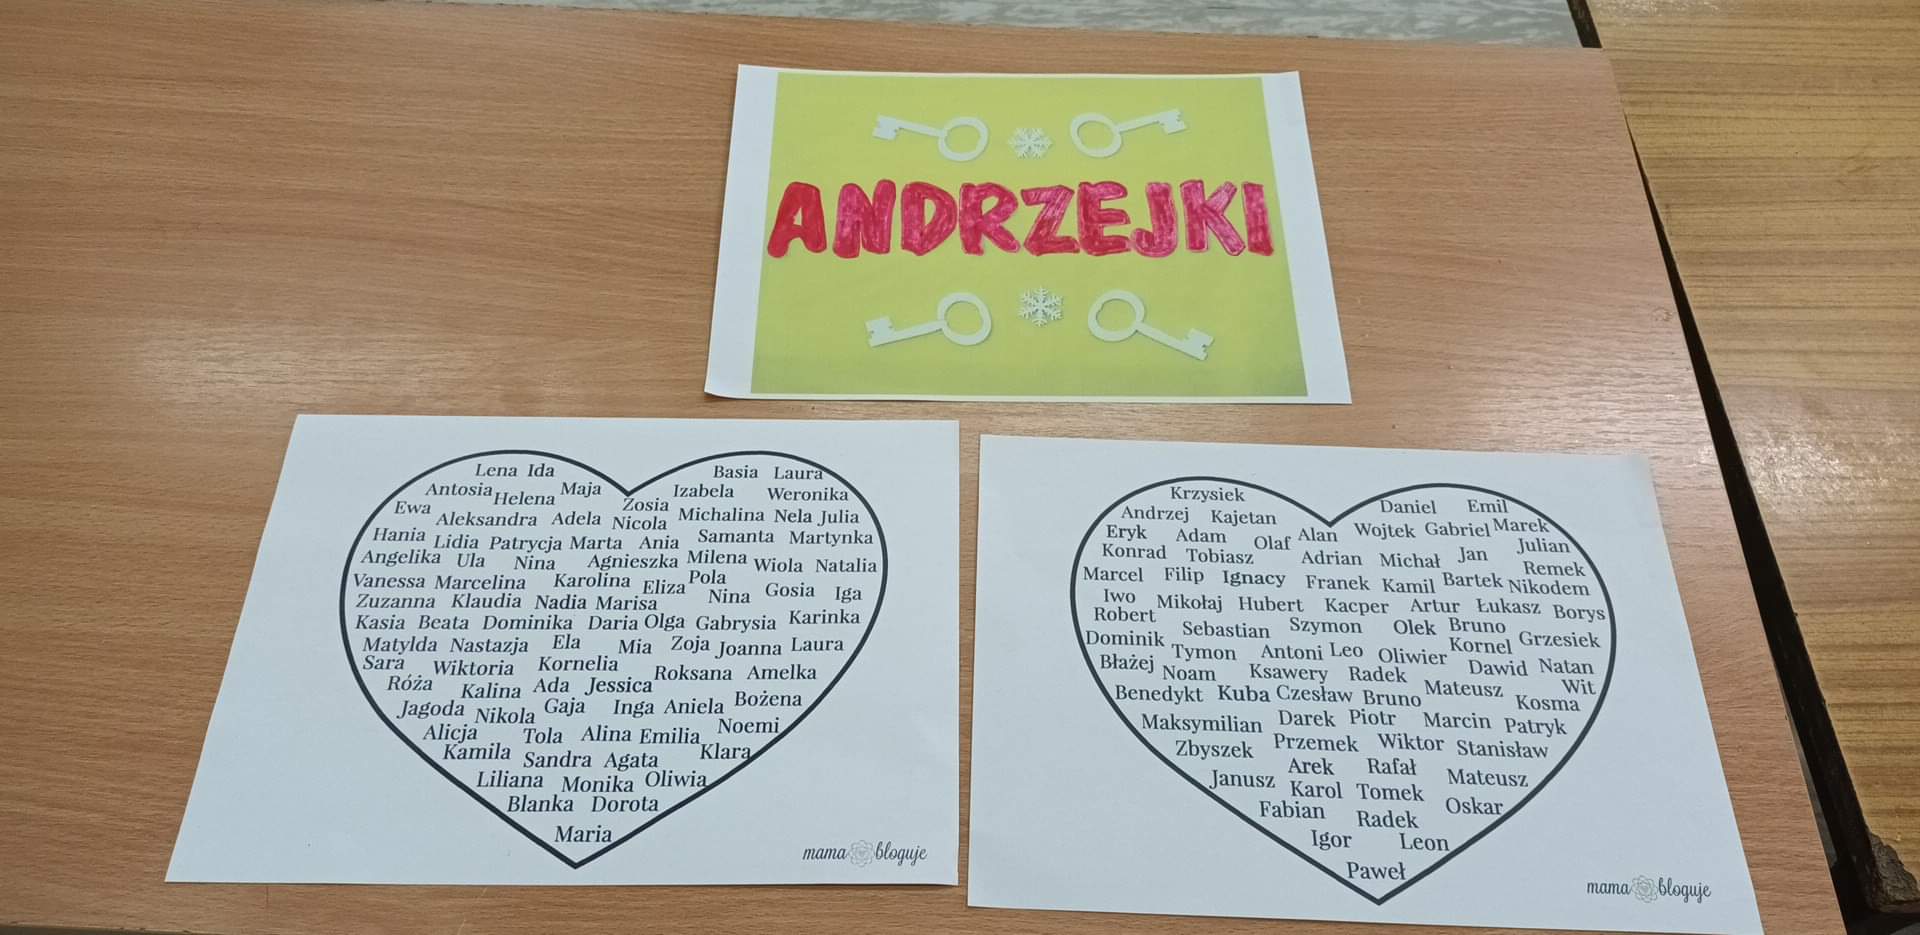 ANDRZEJKI
Lena Ida Basia Laura
Antosia Helena Maja Zosia Izabela Weronika
Ewa Aleksandra Adela Nicola Michalina Nela Julia
Hania Lidia Patrycja Marta Ania Samanta Martynka
Angelika Ula Nina Agnieszka Milena Wiola Natalia
Vanessa Marcelina Karolina Eliza Pola Nina Gosia Iga
Zuzanna Klaudia Nadia Marisa
Kasia Beata Dominika Daria Olga Gabrysia Karinka
Matylda Nastazja Ela Mia Zoja Joanna Laura
Sara Wiktoria Kornelia Roksana Amelka
Róża Kalina Ada Jessica
Jagoda Nikola Gaja Inga Aniela Bożena
Alicja Tola Alina Emilia Noemi
Kamila Sandra Agata Klara
Liliana Monika Oliwia
Blanka Dorota
Maria
mama bloguje
Krzysiek Daniel Emil
Andrzej Kajetan Alan Wojtek Gabriel Marek
Eryk Adam Olaf Julian
Konrad Tobiasz Adrian Michał Jan Remek
Marcel Filip Ignacy Franek Kamil Bartek Nikodem
Iwo Mikołaj Hubert Kacper Artur Łukasz Borys
Robert Sebastian Szymon Olek Bruno
Dominik Tymon Antoni Leo Oliwier Kornel Grzesiek
Błażej Noam Ksawery Radek Dawid Natan
Benedykt Kuba Czesław Bruno Mateusz Wit
Kosma
Maksymilian Darek Piotr Marcin Patryk
Zbyszek Przemek Wiktor Stanisław
Arek Rafał
Janusz Karol Tomek Mateusz
Fabian Radek Oskar
Igor Leon
Paweł
mama bloguje